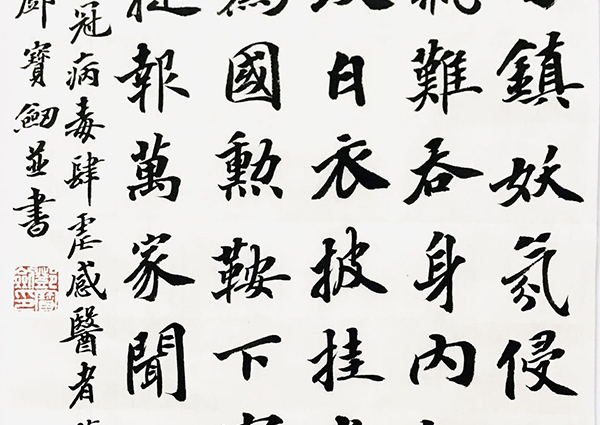 鎮妖氛侵
難吞身內
白衣披挂
國勳鞍下
捷報萬家聞
冠病毒肆虐感醫者
鄧寶劒並書